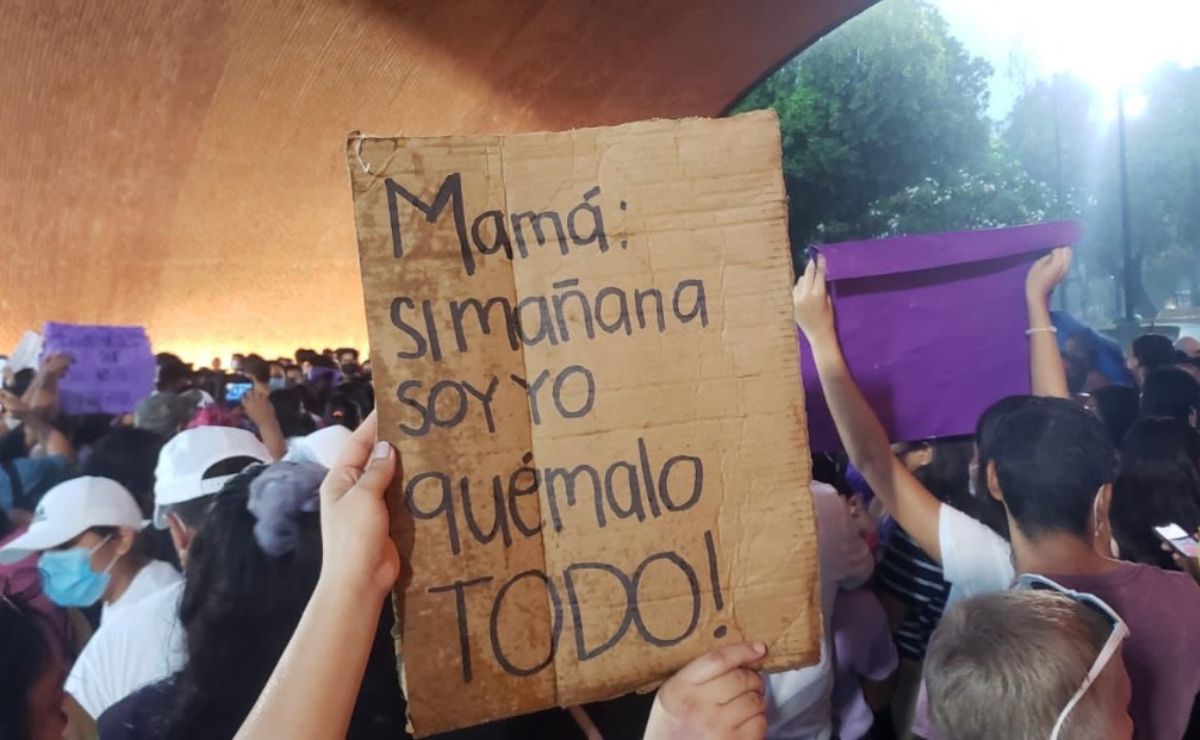 Mamá:
SI mañana
SOY YO
quémalo
TODO!